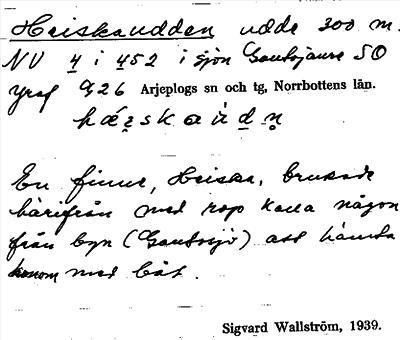 Heiskaudden udde 300 m.
NV 4 i 452 i sjön Gautojaure SO
Yraf 926 Arjeplogs sn och tg, Norrbottens län.
En finne, Heiska, brukade
härifrån med rop kalla någon
från byn (Gautosjö) att hämta
honom med båt.
Sigvard Wallström, 1939.